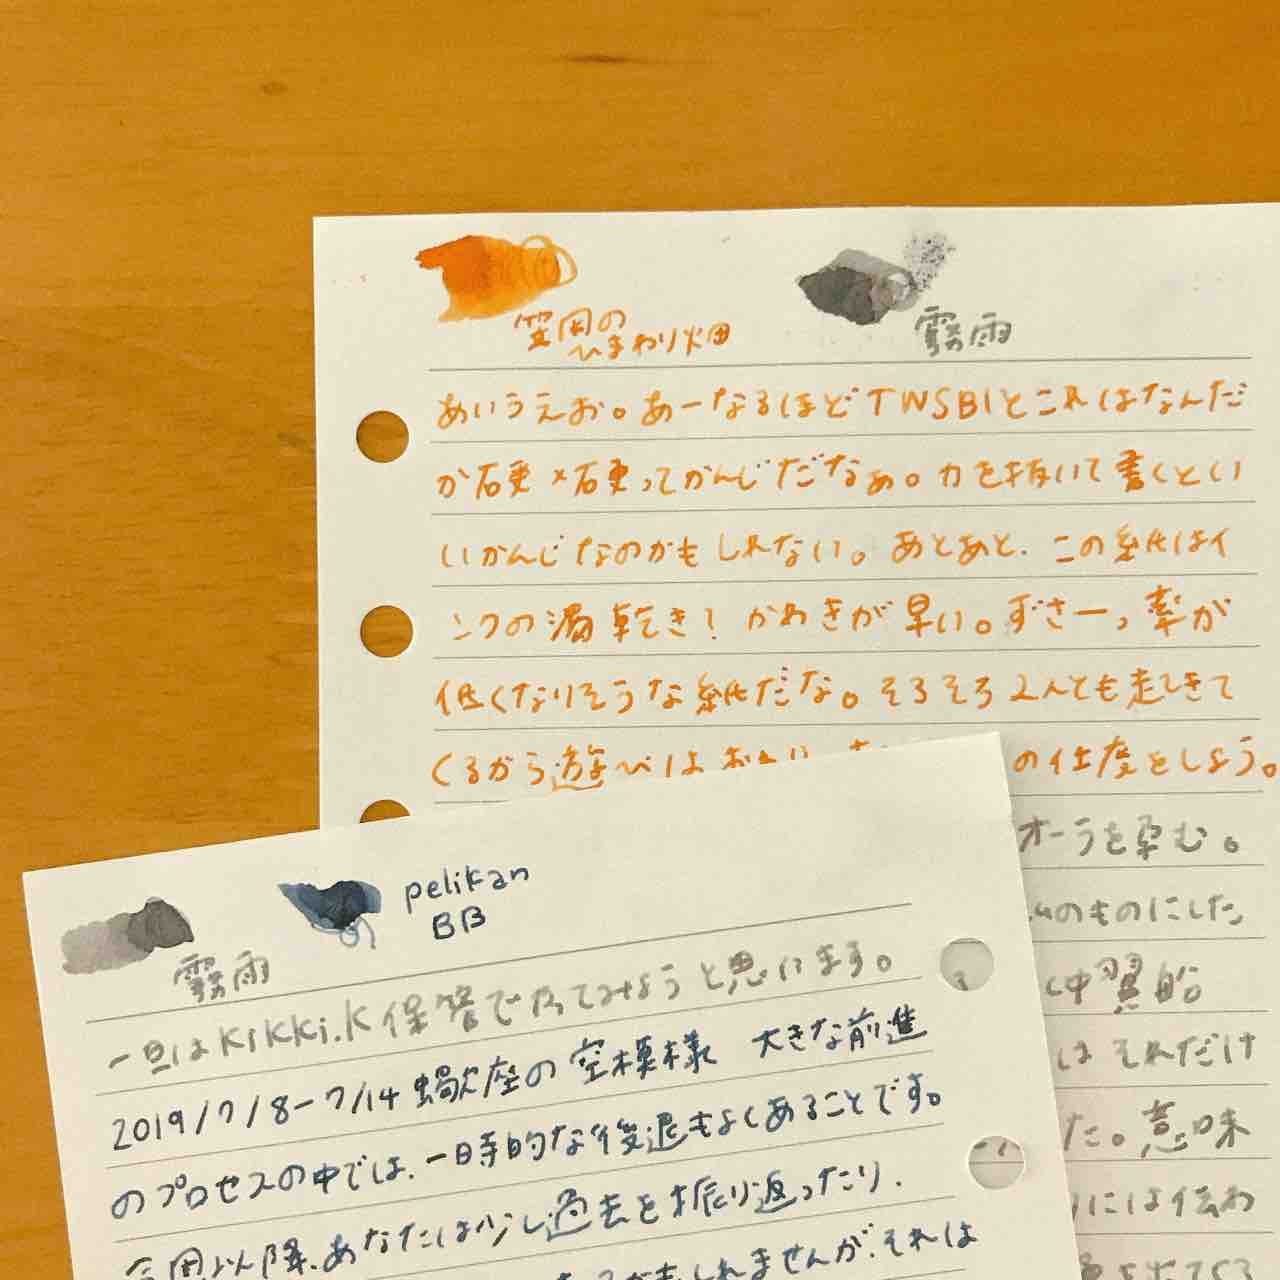 笠岡の
ひまわり畑
霧雨
あいうえお。あーなるほどTWSBIとこれはなんだ
か硬×硬ってかんじだなぁ。力を抜いて書くとい
いかんじなのかもしれない。あとあと、この紙はイ
ンクの渇乾き!かわきが早い。ずさーっ率が
低くなりそうな紙だな。そろそろ2人とも起きて
くるから遊べは の仕度をしよう。
オーラを孕む。
のものにした
習船
は それだけ
た。意味
には伝わ
pelikan
BB
霧雨
一旦はKikki.K保管でやってみようと思います。
2019/7/8-7/14 蠍座の空模様 大きな前進
のプロセスの中では、一時的な後退もよくあることです。
今週以降、あなたは少し過去を振り返ったり、
かもしれませんが、それは